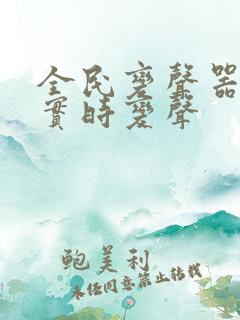 全民變聲器
實時變聲
鲍美利
未经同意禁止转载